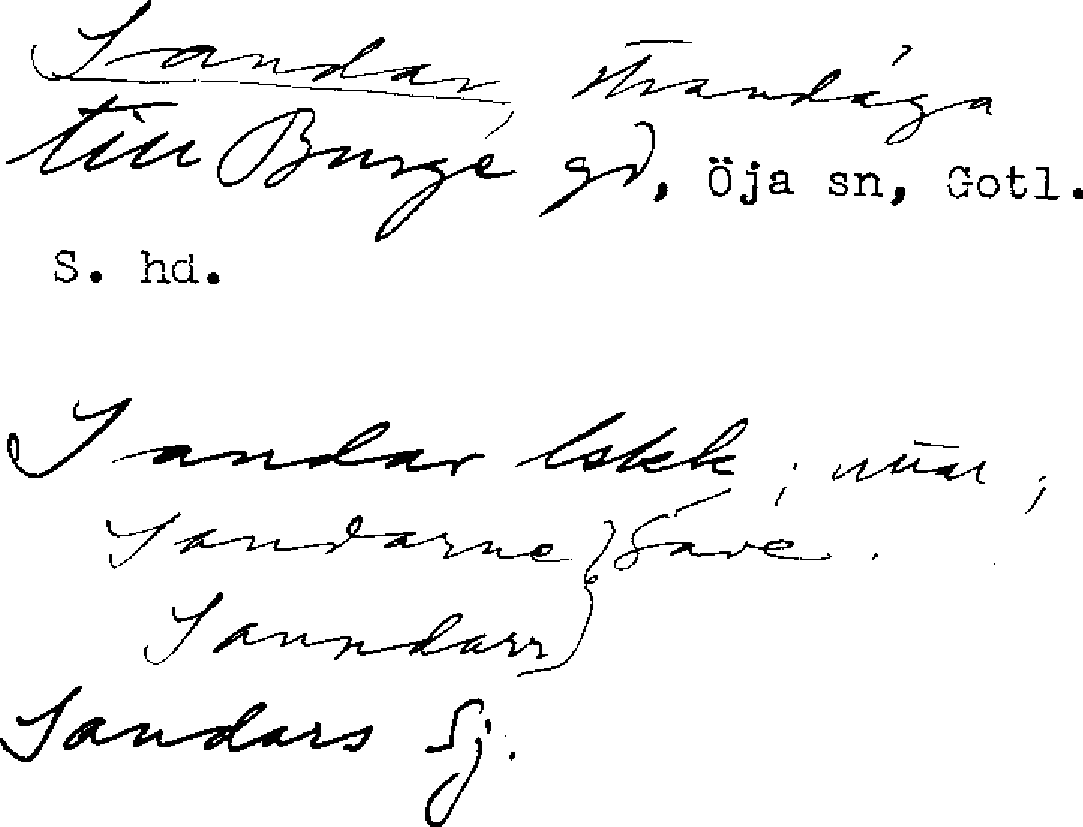 Sandar, strandäga
till Burge gd, Öja sn, Gotl.
S. hd.
Sandar lskk; ;
Sandarne } Säve.
Saundarr }
Sandars Sj.